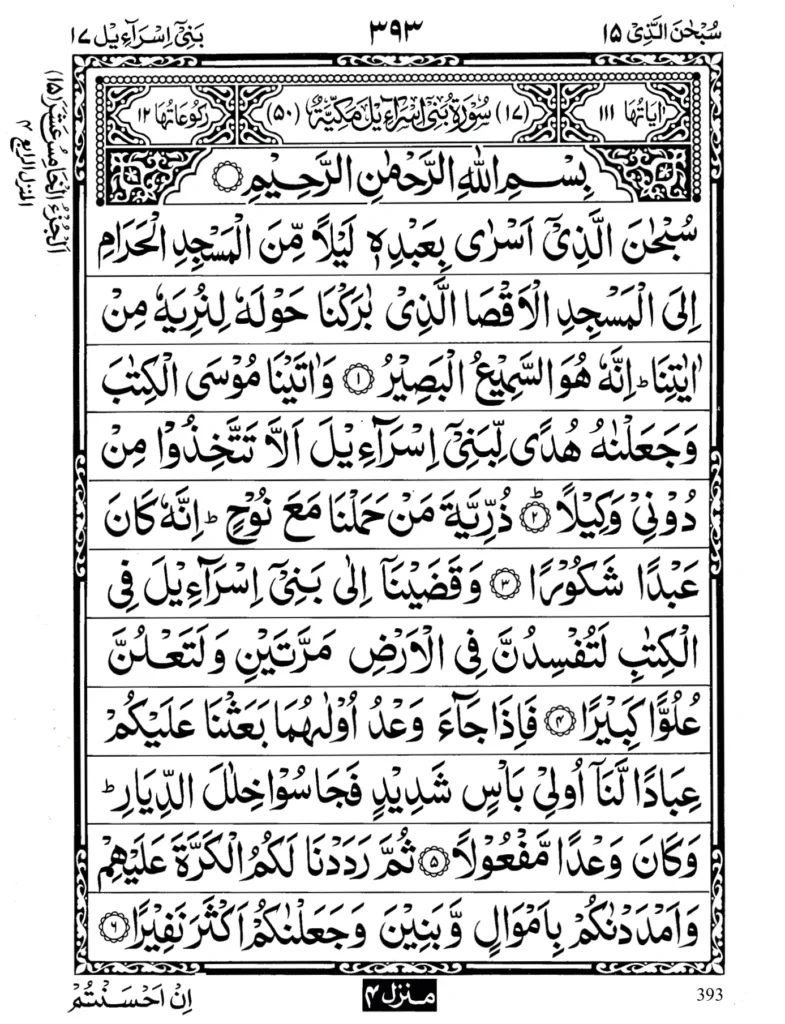 سُبْحٰنَ الَّذِىْۤ ۱۵
۳۹۳
بَنِىْۤ اِسْرَآءِيْل ۱۷
اٰيَاتُهَا ۱۱۱
(۱۷) سُوْرَةُ بَنِىْۤ اِسْرَآءِيْلَ مَكِّيَّةٌ (۵۰)
رُكُوْعَاتُهَا ۱۲
اَلْجُزْءُ الْخَامِسُ عَشَرَ (۱۵)
المنزل الرابع ۴
بِسْمِ اللّٰهِ الرَّحْمٰنِ الرَّحِيْمِ
سُبْحٰنَ الَّذِىْۤ اَسْرٰى بِعَبْدِهٖ لَيْلًا مِّنَ الْمَسْجِدِ الْحَرَامِ
اِلَى الْمَسْجِدِ الْاَقْصَا الَّذِىْ بٰرَكْنَا حَوْلَهٗ لِنُرِيَهٗ مِنْ
اٰيٰتِنَا ؕ اِنَّهٗ هُوَ السَّمِيْعُ الْبَصِيْرُ ۱ وَاٰتَيْنَا مُوْسَى الْكِتٰبَ
وَجَعَلْنٰهُ هُدًى لِّبَنِىْۤ اِسْرَآءِيْلَ اَلَّا تَتَّخِذُوْا مِنْ
دُوْنِىْ وَكِيْلًا ؕ ۲ ذُرِّيَّةَ مَنْ حَمَلْنَا مَعَ نُوْحٍ ؕ اِنَّهٗ كَانَ
عَبْدًا شَكُوْرًا ۳ وَقَضَيْنَاۤ اِلٰى بَنِىْۤ اِسْرَآءِيْلَ فِى
الْكِتٰبِ لَتُفْسِدُنَّ فِى الْاَرْضِ مَرَّتَيْنِ وَلَتَعْلُنَّ
عُلُوًّا كَبِيْرًا ۴ فَاِذَا جَآءَ وَعْدُ اُوْلٰىهُمَا بَعَثْنَا عَلَيْكُمْ
عِبَادًا لَّنَاۤ اُولِىْ بَاْسٍ شَدِيْدٍ فَجَاسُوْا خِلٰلَ الدِّيَارِ ؕ
وَكَانَ وَعْدًا مَّفْعُوْلًا ۵ ثُمَّ رَدَدْنَا لَكُمُ الْكَرَّةَ عَلَيْهِمْ
وَاَمْدَدْنٰكُمْ بِاَمْوَالٍ وَّبَنِيْنَ وَجَعَلْنٰكُمْ اَكْثَرَ نَفِيْرًا ۶
393
منزل ۴
اِنْ اَحْسَنْتُمْ